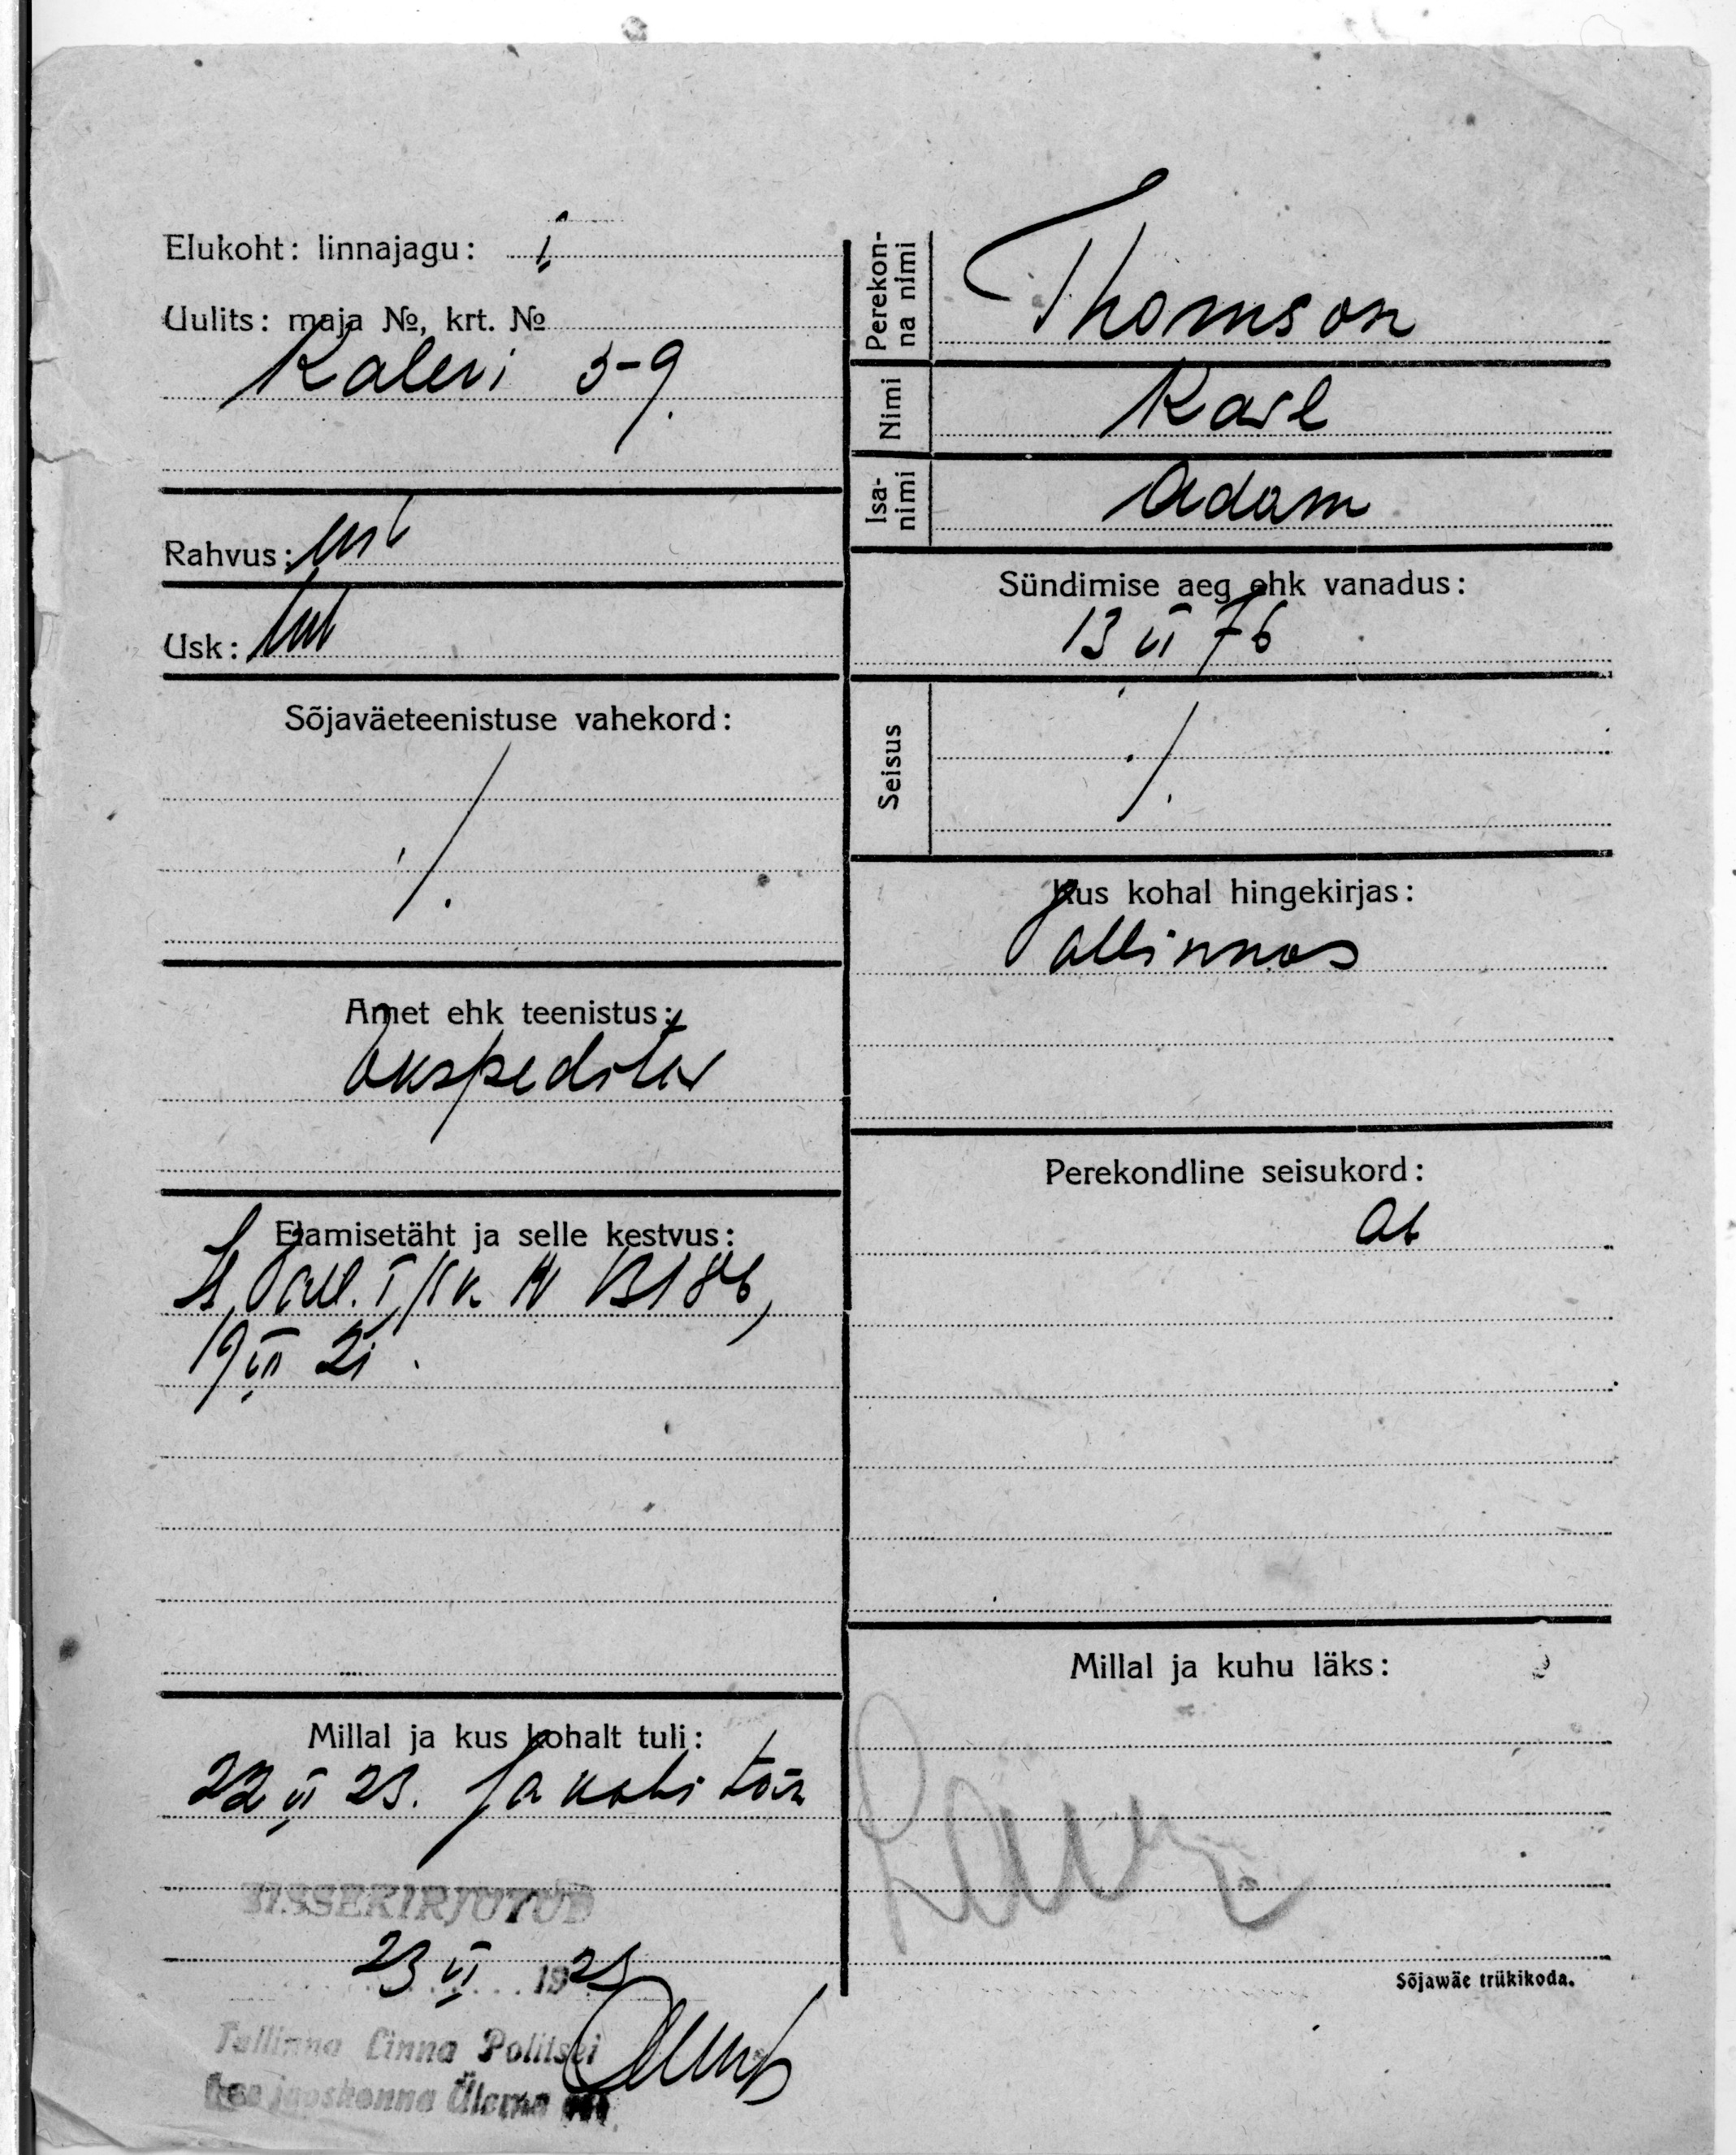 Elukoht: linnajagu: I
Uulits: maja №, krt. №
Kalevi 5-9.
Rahvus: est
Usk: lut
Sõjaväeteenistuse vahekord:
·/.
Amet ehk teenistus:
Ekspeditor
Elamisetäht ja selle kestvus:
Tall. I jsk. N B186,
19 VII 21.
Millal ja kus kohalt tuli:
22 VI 23. Jakobi tän
SISSEKIRJUTUD
23 VI 1923
Tallinna Linna Politsei
jaoskonna Ülema
Perekonna nimi
Thomson
Nimi
Karl
Isanimi
Adam
Sündimise aeg ehk vanadus:
13 VI 76
Seisus
·/.
Kus kohal hingekirjas:
Tallinnas
Perekondline seisukord:
ab
Millal ja kuhu läks:
Sõjawäe trükikoda.